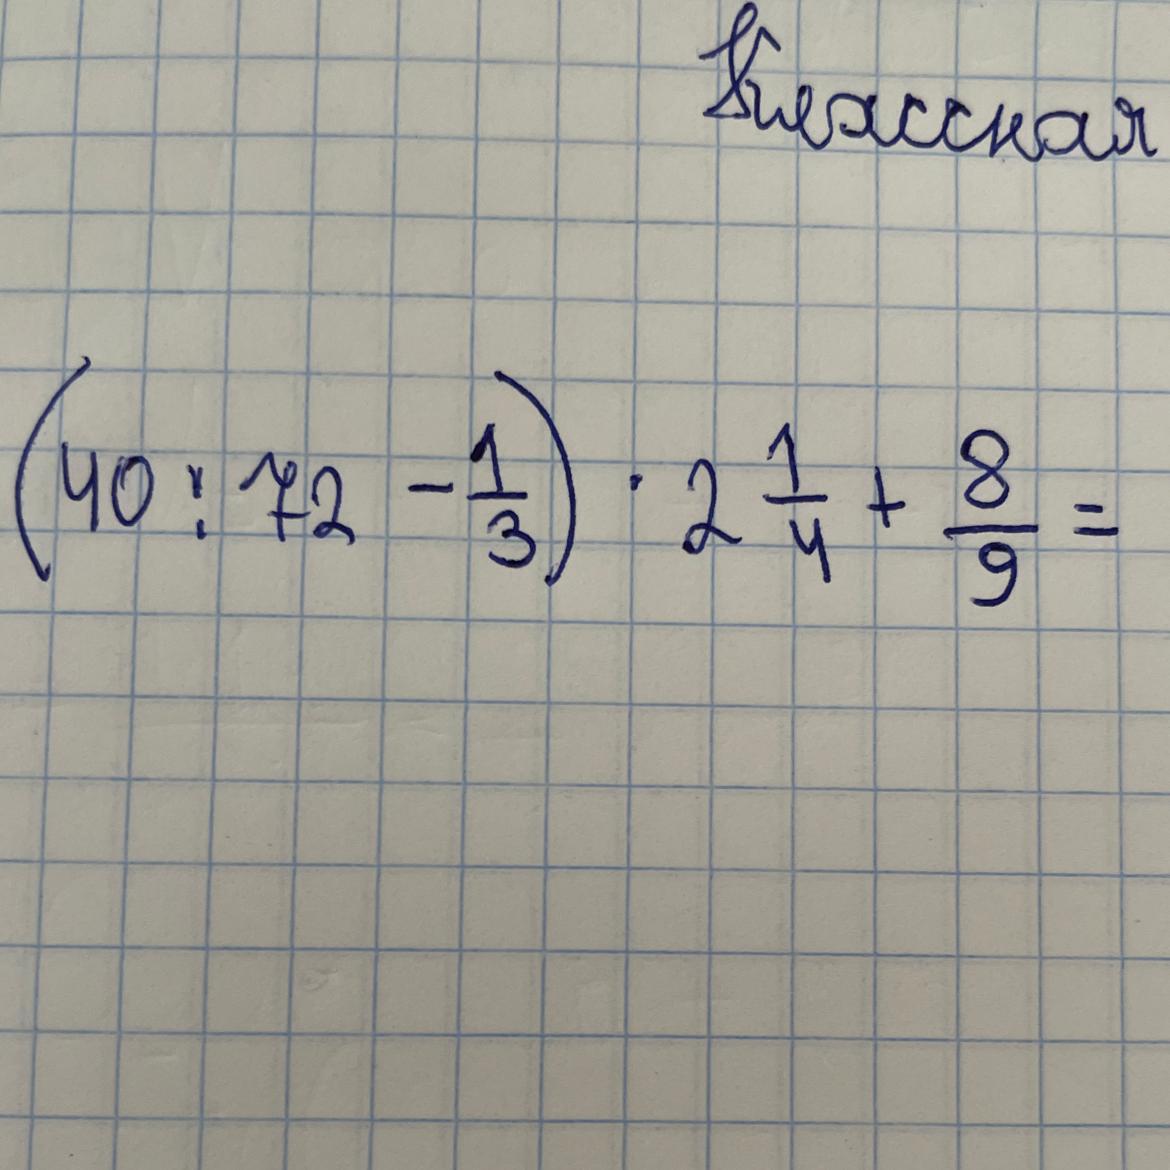 Классная
(40 : 72 - 1/3) · 2 1/4 + 8/9 =